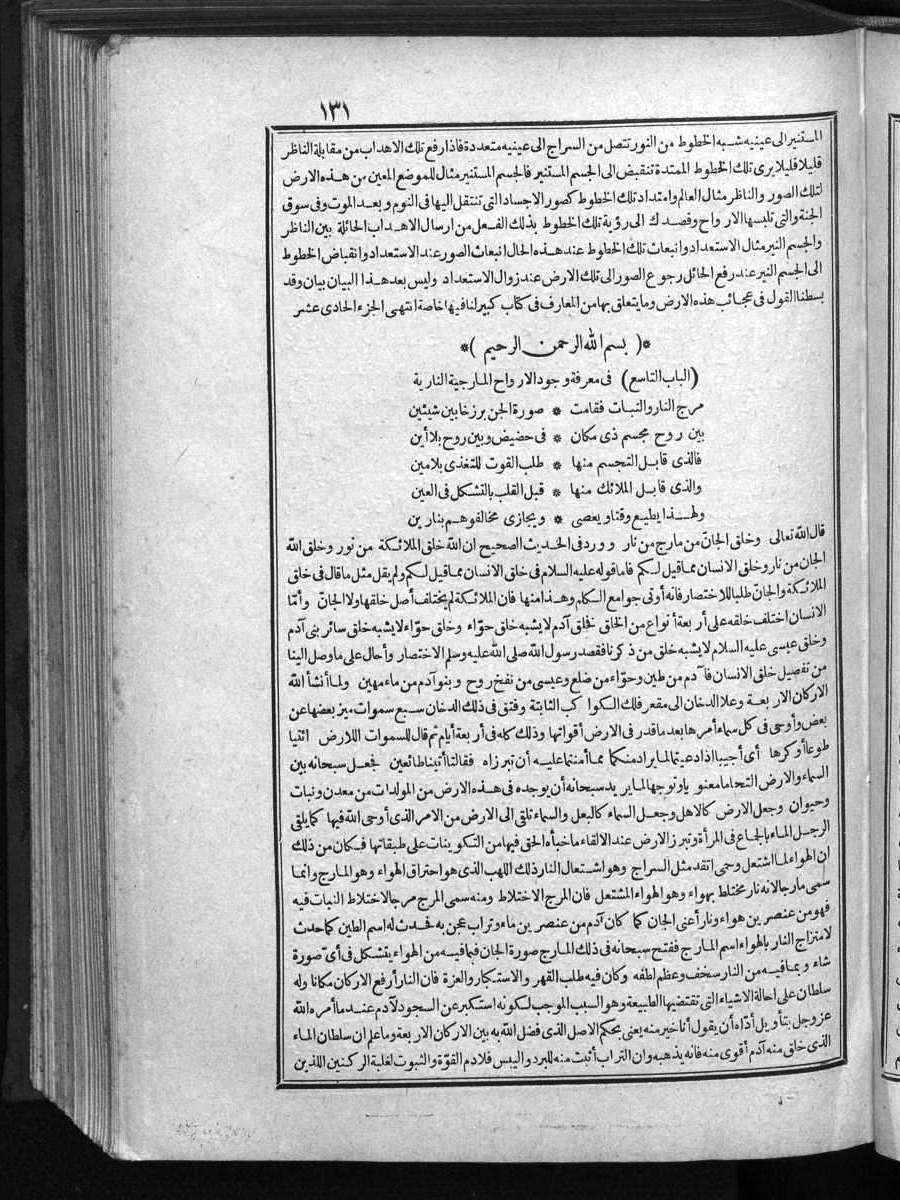 ١٣١
المستنير الى عينيه شبه الخطوط من النور تتصل من السراج الى عينيه متعددة فاذا رفع تلك الاهداب من مقابلة الناظر
قليلا قليلا يرى تلك الخطوط الممتدة تنقبض الى الجسم المستنير فالجسم المستنير مثال للموضع المعين من هذه الارض
لتلك الصور والناظر مثال العالم وامتداد تلك الخطوط كصور الاجساد التي تنتقل اليها في النوم وبعد الموت وفي سوق
الجنة والتي تلبسها الارواح وقصدك الى رؤية تلك الخطوط بذلك الفعل من ارسال الاهداب الحائلة بين الناظر
والجسم النير مثال الاستعداد وانبعاث تلك الخطوط عند هذه الحال انبعاث الصور عند الاستعداد وانقباض الخطوط
الى الجسم النير عند رفع الحائل رجوع الصور الى تلك الارض عند زوال الاستعداد وليس بعد هذا البيان بيان وقد
بسطنا القول في عجائب هذه الارض وما يتعلق بها من المعارف في كتاب كبير لنا فيها خاصة انتهى الجزء الحادى عشر
* ( بسم الله الرحمن الرحيم ) *
(الباب التاسع) في معرفة وجود الارواح المارجية النارية
مرج النار والنبات فقامت * صورة الجن برزخا بين شيئين
بين روح مجسم ذى مكان * في حضيض وبين روح بلا أين
فالذى قابل التجسم منها * طلب القوت للتغذى بلا مين
والذى قابل الملائك منها * قبل القلب بالتشكل في العين
ولهذا يطيع وقتا ويعصى * ويجازى مخالفوهم بنارين
قال الله تعالى وخلق الجان من مارج من نار وورد في الحديث الصحيح ان الله خلق الملائكة من نور وخلق الله
الجان من نار وخلق الانسان مما قيل لكم فاما قوله عليه السلام في خلق الانسان مما قيل لكم ولم يقل مثل ما قال في خلق
الملائكة والجان طلبا للاختصار فانه أوتى جوامع الكلم وهذا منها فان الملائكة لم يختلف أصل خلقها ولا الجان وأمّا
الانسان اختلف خلقه على أربعة أنواع من الخلق فخلق آدم لا يشبه خلق حوّاء وخلق حوّاء لا يشبه خلق سائر بنى آدم
وخلق عيسى عليه السلام لا يشبه خلق من ذكرنا فقصد رسول الله صلى الله عليه وسلم الاختصار وأحال على ما وصل الينا
من تفصيل خلق الانسان فآدم من طين وحوّاء من ضلع وعيسى من نفخ روح وبنو آدم من ماء مهين ولما أنشأ الله
الاركان الاربعة وعلا الدخان الى مقعر فلك الكواكب الثابتة وفتق في ذلك الدخان سبع سموات ميز بعضها عن
بعض وأوحى في كل سماء أمرها بعد ما قدر في الارض أقواتها وذلك كله في أربعة أيام ثم قال للسموات والارض ائتيا
طوعا أو كرها أى أجيبا اذا دعيتما لما يراد منكما مما أمنتما عليه أن تبرزاه فقالتا أتينا طائعين فجعل سبحانه بين
السماء والارض التحاما معنويا وتوجها لما يريد سبحانه أن يوجده في هذه الارض من المولدات من معدن ونبات
وحيوان وجعل الارض كالاهل وجعل السماء كالبعل والسماء تلقى الى الارض من الامر الذى أوحى الله فيها كما يلقى
الرجل الماء بالجماع في المرأة وتبرز الارض عند الالقاء ما خبأه الحق فيها من التكوينات على طبقاتها فكان من ذلك
ان الهواء لما اشتعل وحمى اتقد مثل السراج وهو اشتعال النار ذلك اللهب الذى هو احتراق الهواء وهو المارج وانما
سمى مارجا لانه نار مختلط بهواء وهو الهواء المشتعل فان المرج الاختلاط ومنه سمى المرج مرجا لاختلاط النبات فيه
فهو من عنصرين هواء ونار أعنى الجان كما كان آدم من عنصرين ماء وتراب عجن به فحدث له اسم الطين كما حدث
لامتزاج النار بالهواء اسم المارج ففتح سبحانه في ذلك المارج صورة الجان فبما فيه من الهواء يتشكل في أىّ صورة
شاء وبما فيه من النار سخف وعظم لطفه وكان فيه طلب القهر والاستكبار والعزة فان النار أرفع الاركان مكانا وله
سلطان على احالة الاشياء التي تقتضيها الطبيعة وهو السبب الموجب لكونه استكبر عن السجود لآدم عندما أمره الله
عز وجل بتأويل أدّاه أن يقول أنا خير منه يعنى بحكم الاصل الذى فضل الله به بين الاركان الاربعة وما علم ان سلطان الماء
الذى خلق منه آدم أقوى منه فانه يذهبه وان التراب أثبت منه للبرد واليبس فلآدم القوّة والثبوت لغلبة الركنين اللذين